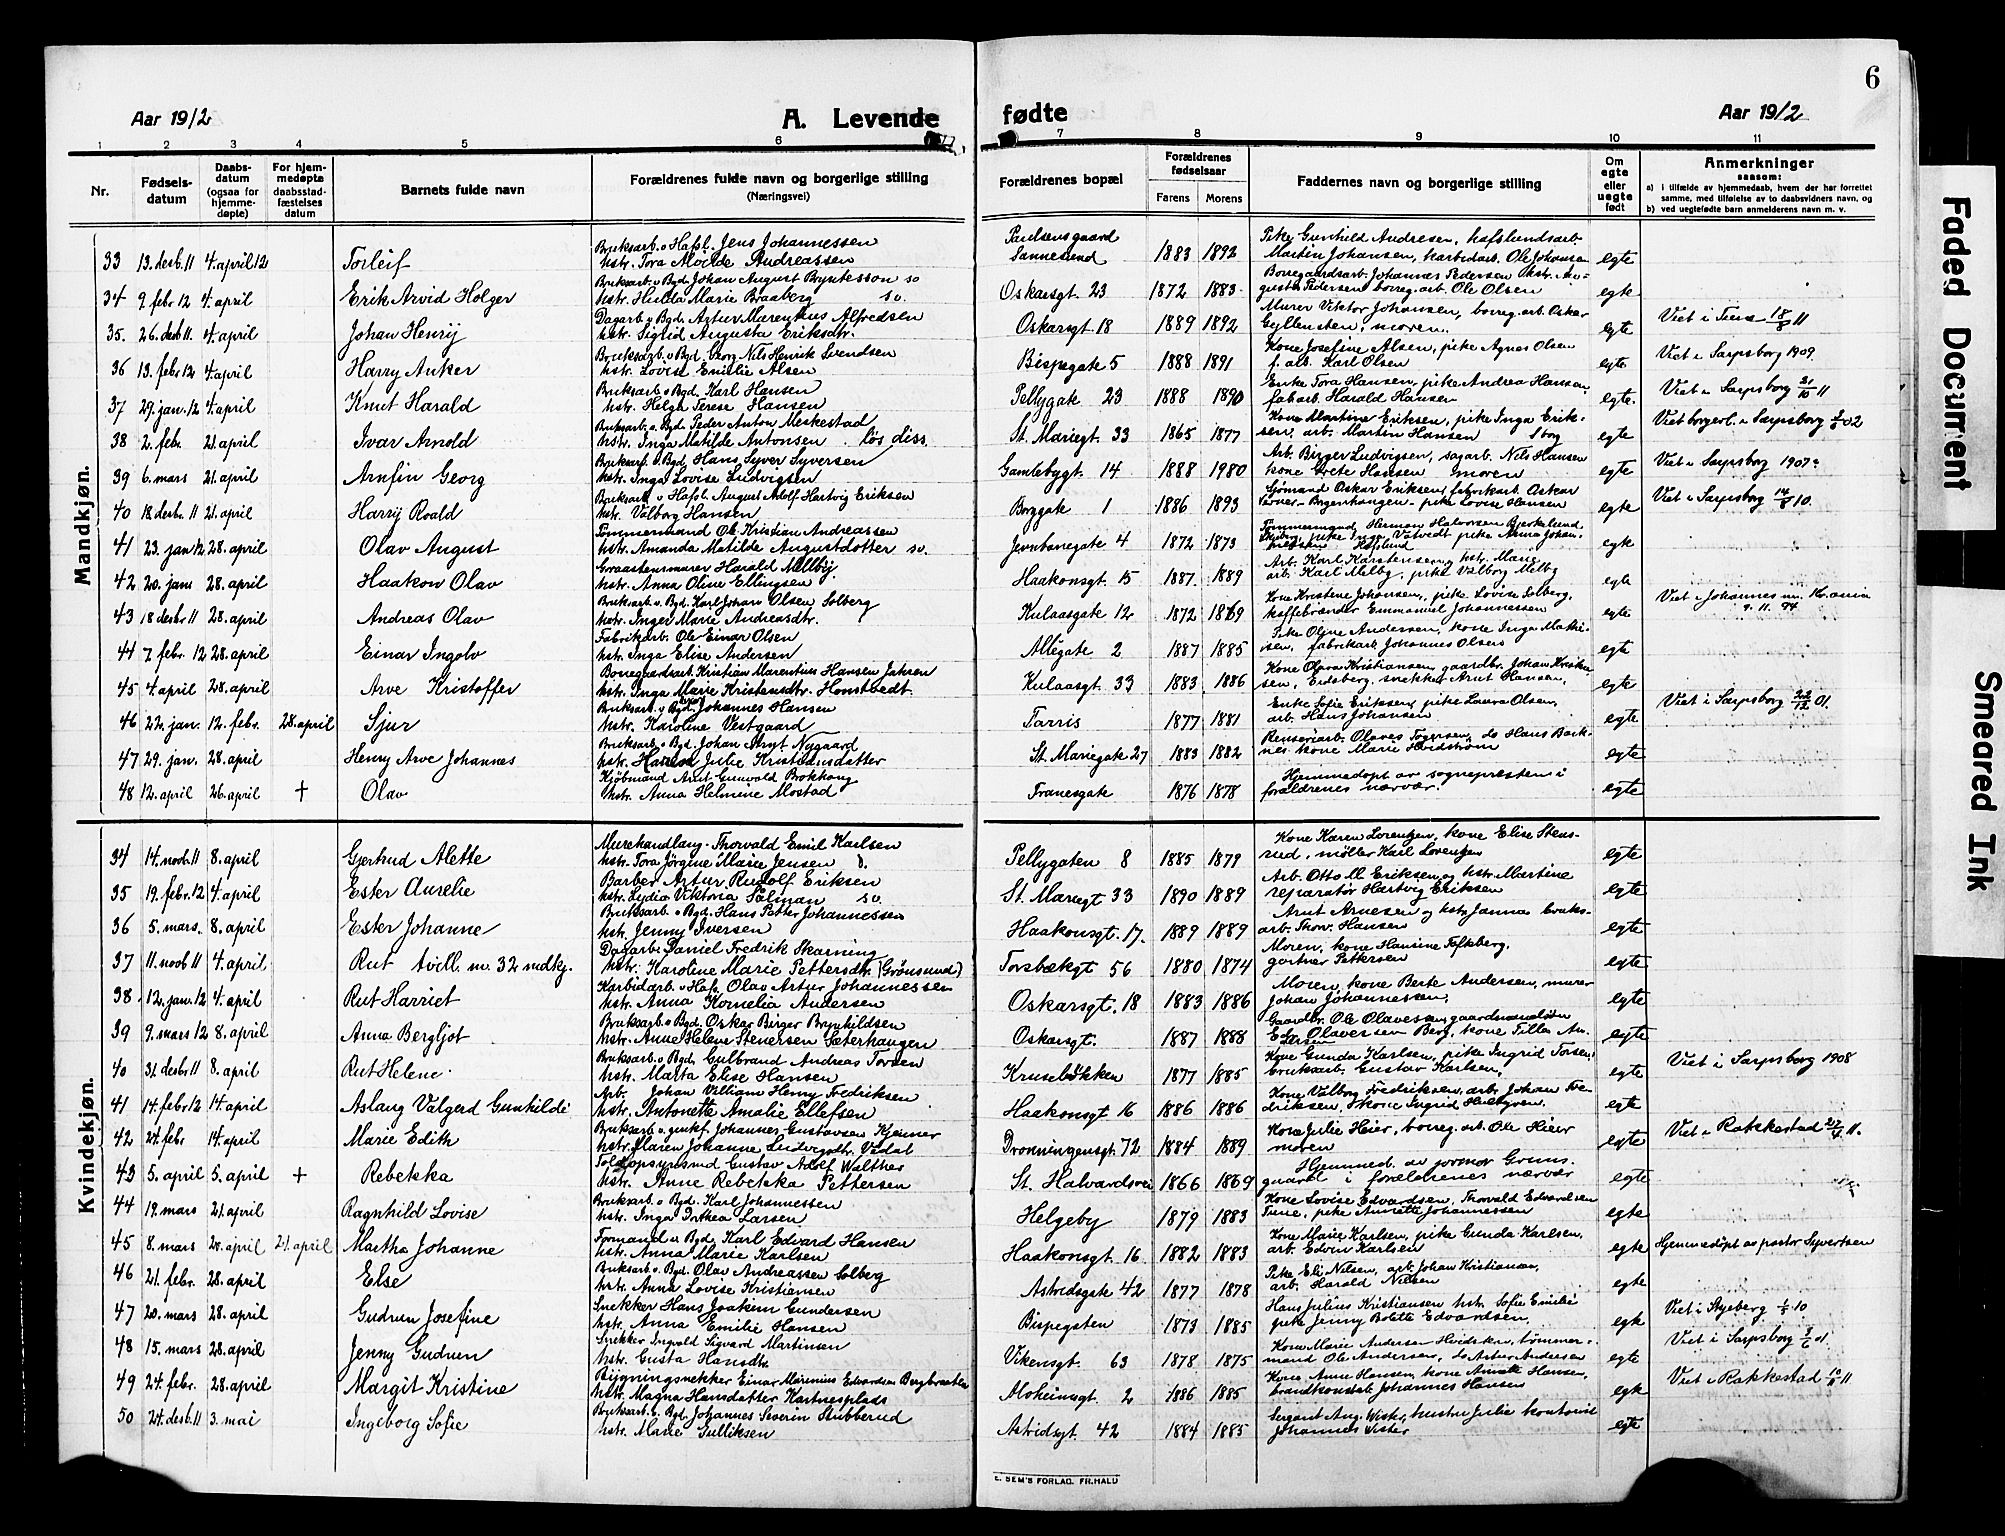 6
Aar 1912
A. Levende
fødte
Aar 1912
1 2 3 4 5 6 7 8 9 10 11
Nr.
Fødsels-
datum
Daabs-
datum
(ogsaa for
hjemme-
døpte)
For hjem-
medøpte
daabsstad-
fæstelses
datum
Barnets fulde navn
Forældrenes fulde navn og borgerlige stilling
(Næringsvei)
Forældrenes bopæl
Forældrenes
fødselsaar
Farens
Morens
Faddernes navn og borgerlige stilling
Om
egte
eller
uegte
født
Anmerkninger
saasom:
a) i tilfælde av hjemmedaab, hvem der har forrettet
samme, med tilføielse av to daabsvidners navn, og
b) ved uegtefødte barn anmelderens navn m. v.
Mandkjøn.
33 13. desb. 11 4. april 12 Torleif Bruksarb. v. Hafsl. Jens Johannessen
hstr. Tora Andreassen Sannesund 1883 1892 Martin Johansen, karbidarb. Ole Johansen egte
34 9. febr. 12 4. april Erik Arvid Holger Bruksarb. v. Bgd. Johan August Bryntesson so
hstr. Hulda Marie Braaberg so. Oskarsgt. 23 1872 1883 Borregaardsarb. Johannes Pedersen hstr. Au-
gusta Pedersen, borreg. arb. Ole Olsen egte
35. 26. desb. 11. 4. april Johan Henrij Dagarb. v. Bgd. Artur Marentius Alfredsen
hstr. Sigrid Augusta Eriksdtr. Oskarsgt. 18 1889 1892 Murer Viktor Johansen, borreg. arb. Oskar
Gyllensten, moren. egte Viet i Tune 18/8 11
36 13. febr. 12 4. april Harry Anker Bruksarb. v. Bgd. Georg Nils Henrik Svendsen
hstr. Lovise Emilie Alsen Bispegate 5 1888 1891 Kone Josefine Alsen, pike Agnes Olsen
f. arb. Karl Olsen egte Viet i Sarpsborg 1909.
37 29. jan. 12 4. april Knut Harald Bruksarb. v. Bgd. Karl Hansen
hstr. Helga Terese Hansen Pellygate 23 1888 1890 Enke Tora Hansen, pike Andrea Hansen
fabarb. Harald Hansen egte. Viet i Sarpsborg 21/10 11
38 2. febr. 21. april Ivar Arnold Bruksarb. v. Bgd. Peder Anton Meskestad
hstr. Inga Matilde Antonsen. løs diss. St. Mariegt. 33 1865 1877 Kone Martine Eriksen, pike Inga Erik-
sen, arb. Martin Hansen S borg egte Viet borgerl. i Sarpsborg
39 6. mars 21. april Arnfin Georg Bruksarb. v. Bgd. Hans Syver Syversen
hstr. Inga Lovise Ludvigsen Gamlebygt. 14 1888 1980 Arb. Birger Ludvigsen, sagarb. Nils Hansen
kone Grete Hansen moren egte Viet i Sarpsborg 1907.
40 18. desbr. 11 21. april Harry Roald Bruksarb. v. Hafsl. August Adolf Hartvig Eriksen
hstr. Valborg Hansen Borggate 1 1886 1893 Sjømand Oskar Eriksen, fabrikarb. Oskar
pike Lovise Hansen egte Viet i Sarpsborg 14/8 10.
41 23. jan 12 28. april Olav August Tømmermand Ole Kristian Andreassen
hstr. Amanda Matilde Augustdotter so. Jernbanegate 4 1872 1873 Tømmermand Herman Halvorsen Bjerkelund
Skjeberg, pike Inga Vatvedt pike Anna Johan-
nessen Hafslund egte
42 20. jan 28. april Haakon Olav Graastensmurer Harald Melby.
hstr. Anna Oline Ellingsen Haakonsgt. 15 1887. 1889 Arb. Karl Karstensen, hstr. Marie
arb. Karl Melby, pike Valborg Melby egte
43 18 desbr 11 28. april Andreas Olav Bruksarb. v. Bgd. Karl Johan Olsen Solberg
hstr. Inger Marie Andreasdtr. Kulaasgate 12 1872 1869 Kone Kristine Johansen, pike Lovise Solberg,
kaffebrænder Emmanuel Johannessen egte Viet i Johannes m. Kr.ania
9. 11. 94
44 7. febr. 12 28. april Einar Ingolv Fabrikarb. Ole Einar Olsen
hstr. Inga Elise Andersen Allégate 2 1887 1885 Pike Oline Andersen, kone Inga Mathi-
sen, fabrikarb. Johannes Olsen egte
45 4. april 28. april Arve Kristoffer Borregaardsarb. Kristian Marentius Hansen Jahren
hstr. Inga Marie Kristensdtr. Honstvedt Kulaasgt. 33 1883 1886 Kone Olava Kristiansen, gaardbr. Johan Kristian-
sen, Eidsberg, snekker Arnt Hansen, egte
46 22. jan. 12. febr. 28. april Sjur Bruksarb. v. Bgd. Johannes Hansen
hstr. Karoline Vestgaard Tarris 1877 1881 Enke Sofie Eriksen, pike Laura Olsen,
arb. Hans Johansen egte Viet i Sarpsborg 22/12 01.
47 29. jan. 28. april Henry Arve Johannes Bruksarb. v. Bgd. Johan Arnt Nygaard
hstr. Hanna Julie Kristiansdatter St. Mariegate 27 1883 1882 Renseriarb. Olaves Togersen, do Hans Bork-
nes kone Marie Lindstrøm egte
48 12. april 26. april † Olav Kjøbmand Arnt Gunvald Brekhong
hstr. Anna Helmine Mostad Tranesgate 1876 1878 Hjemmedøpt av sognepresten i
forældrenes nærvær. egte
Kvindekjøn.
34 14. novb. 11 8. april Gjertrud Alette Murerhandlang. Thorvald Emil Karlsen
hstr. Tora Jørgine Marie Jensen Pellygaten 8 1885 1879 Kone Karen Lorentzen, kone Elise Stens-
rud, møller Karl Lorentzen egte
35 19. febr. 12 4. april Ester Aurelie Barber Artur Rudolf Eriksen
hstr. Lydia Viktoria Salman so. St. Mariegt 33 1890 1889 Arb. Otto M Eriksen og hstr Martine
reparatør Hartvig Eriksen egte
36 5. mars. 8. april Ester Johanne Bruksarb. v. Bgd. Hans Petter Johannessen
hstr. Jenny Iversen Haakonsgt. 17. 1889 1889 Arnt Arnesen og hstr Janna bruks-
arb. Thorv. Hansen egte
37 11. novb 11 4. april Rut tvill. m. 32 mdkj. Dagarb. Daniel Fredrik Skarning
hstr. Karoline Marie Pettersdtr. (Grønsund) Torsbækgt 56 1880 1874 Moren, kone Hansine Tofteberg,
gartner Pettersen egte
38 12. jan. 12 4. april Rut Harriet Karbidarb. v. Hafs. Olav Artur Johannessen
hstr. Anna Kornelia Andersen Oskarsgt. 18 1883 1886 Moren, kone Berte Andersen, murer
Johan Johannessen, egte
39 9. mars 12 8. april Anna Bergljot Bruksarb. v. Bgd. Oskar Birger Brynhildsen
hstr. Anne Helene Stenersen Sæterhaugen Oskarsgt. 1887 1888 Gaardbr. Ole Olavesen, gaardmandsøn
E. Olaversen Berg, kone Tilla An-
dersen egte
40 31. desbr 11 8. april Rut Helene. Bruksarb. v. Bgd. Gulbrand Andreas Torsen
hstr. Marta Elise Hansen Krusebakken 1877 1885 Kone Gunda Karlsen, pike Ingrid Torsen
bruksarb. Gustav Karlsen, egte Viet i Sarpsborg 1908
41 14. febr 12 14. april Aslaug Valgerd Gunhilde Arb. Johan Villiam Henry Fredriksen
hstr. Antonette Amalie Ellefsen Haakonsgt 16 1886 1886 Kone Valborg Fredriksen, arb. Johan Fre-
driksen, kone Ingrid egte
42 24. febr 14. april Marie Edith Bruksarb. v. Johannes Gustavsen Kjenner
hstr. Maren Johanne Ludvigsdtr. Vadat Dronningensgt. 72 1884 1889 Kone Julie Heier, borreg. arb. Ole Heier
moren egte Viet i Rakkestad 22/4 11.
43 5. april 5. april † Rebekka Toldopsynsmd Gustav Adolf Walther
hstr. Anne Rebekka Pettersen St. Halvardsvei 1866 1869 Hjemmed. av jormor Gruns-
guard i forældrenes nærvær egte
44 19. mars 21. april Ragnhild Lovise Bruksarb. v. Bgd. Karl Johannessen
hstr. Inga Dorthea Larsen Helgeby 1879 1883 Kone Lovise Edvardsen, Thorvald Edvardsen
Tune, pike Annette Johannessen egte
45 8. mars 20. april 21. april Martha Johanne Formand v. Bgd. Karl Edvard Hansen
hstr. Anna Marie Karlsen Haakonsgt. 16 1882 1883 Kone Marie Karlsen, pike Gunda Karlsen,
arb. Edvin Karlsen egte Hjemmedøpt av pastor Syvertsen
46 21. febr. 28. april Else Bruksarb. v. Bgd. Olav Andreassen Solberg
hstr. Anna Lovise Kristiansen Astridsgate 42 1877 1878 Pike Eli Nilsen, arb Johan Kristiansen,
arb. Harald Nilsen egte
47 20. mars 28. april Gudrun Josefine Snekker Hans Joakim Gundersen
hstr. Anna Emilie Hansen Bispegaten 1873 1885 Hans Julius Kristiansen hstr. Sofie Emilie
pike Jenny Bolette Edvardsen, egte Viet i
48 15. mars 28. april Jenny Gudrun Snekker Ingvald Sigvard Martinsen
hstr. Gusta Hansdtr. Vikensgt. 63 1878 1875 Kone Marie Andersen Hvidsten, tømmer-
mand Ole Andersen, do Artur Andersen egte Viet i Sarpsborg
49 24. febr. 28. april Margit Kristine Bygningsnekker Einar Marinius Edvardsen Bergbraaten
hstr. Magna Hansdatter Kartnesplads Aloheimsgt. 2 1886 1885 Kone Anne Hansen, kone Amalie Hansen,
brandkonstabl Johannes Hansen egte Viet i Rakkestad
50 24. desb. 11 3. mai Ingeborg Sofie Bruksarb. v. Bgd. Johannes Severin Stubberud
hstr. Marie Gulliksen Astridsgt. 42 1884 1885 Sergant Aug. Wister, hustru Julie kontorist
Johannes Wister egte
E. SEM'S FORLAG. FR.HALD
Faded Document
Smeared Ink